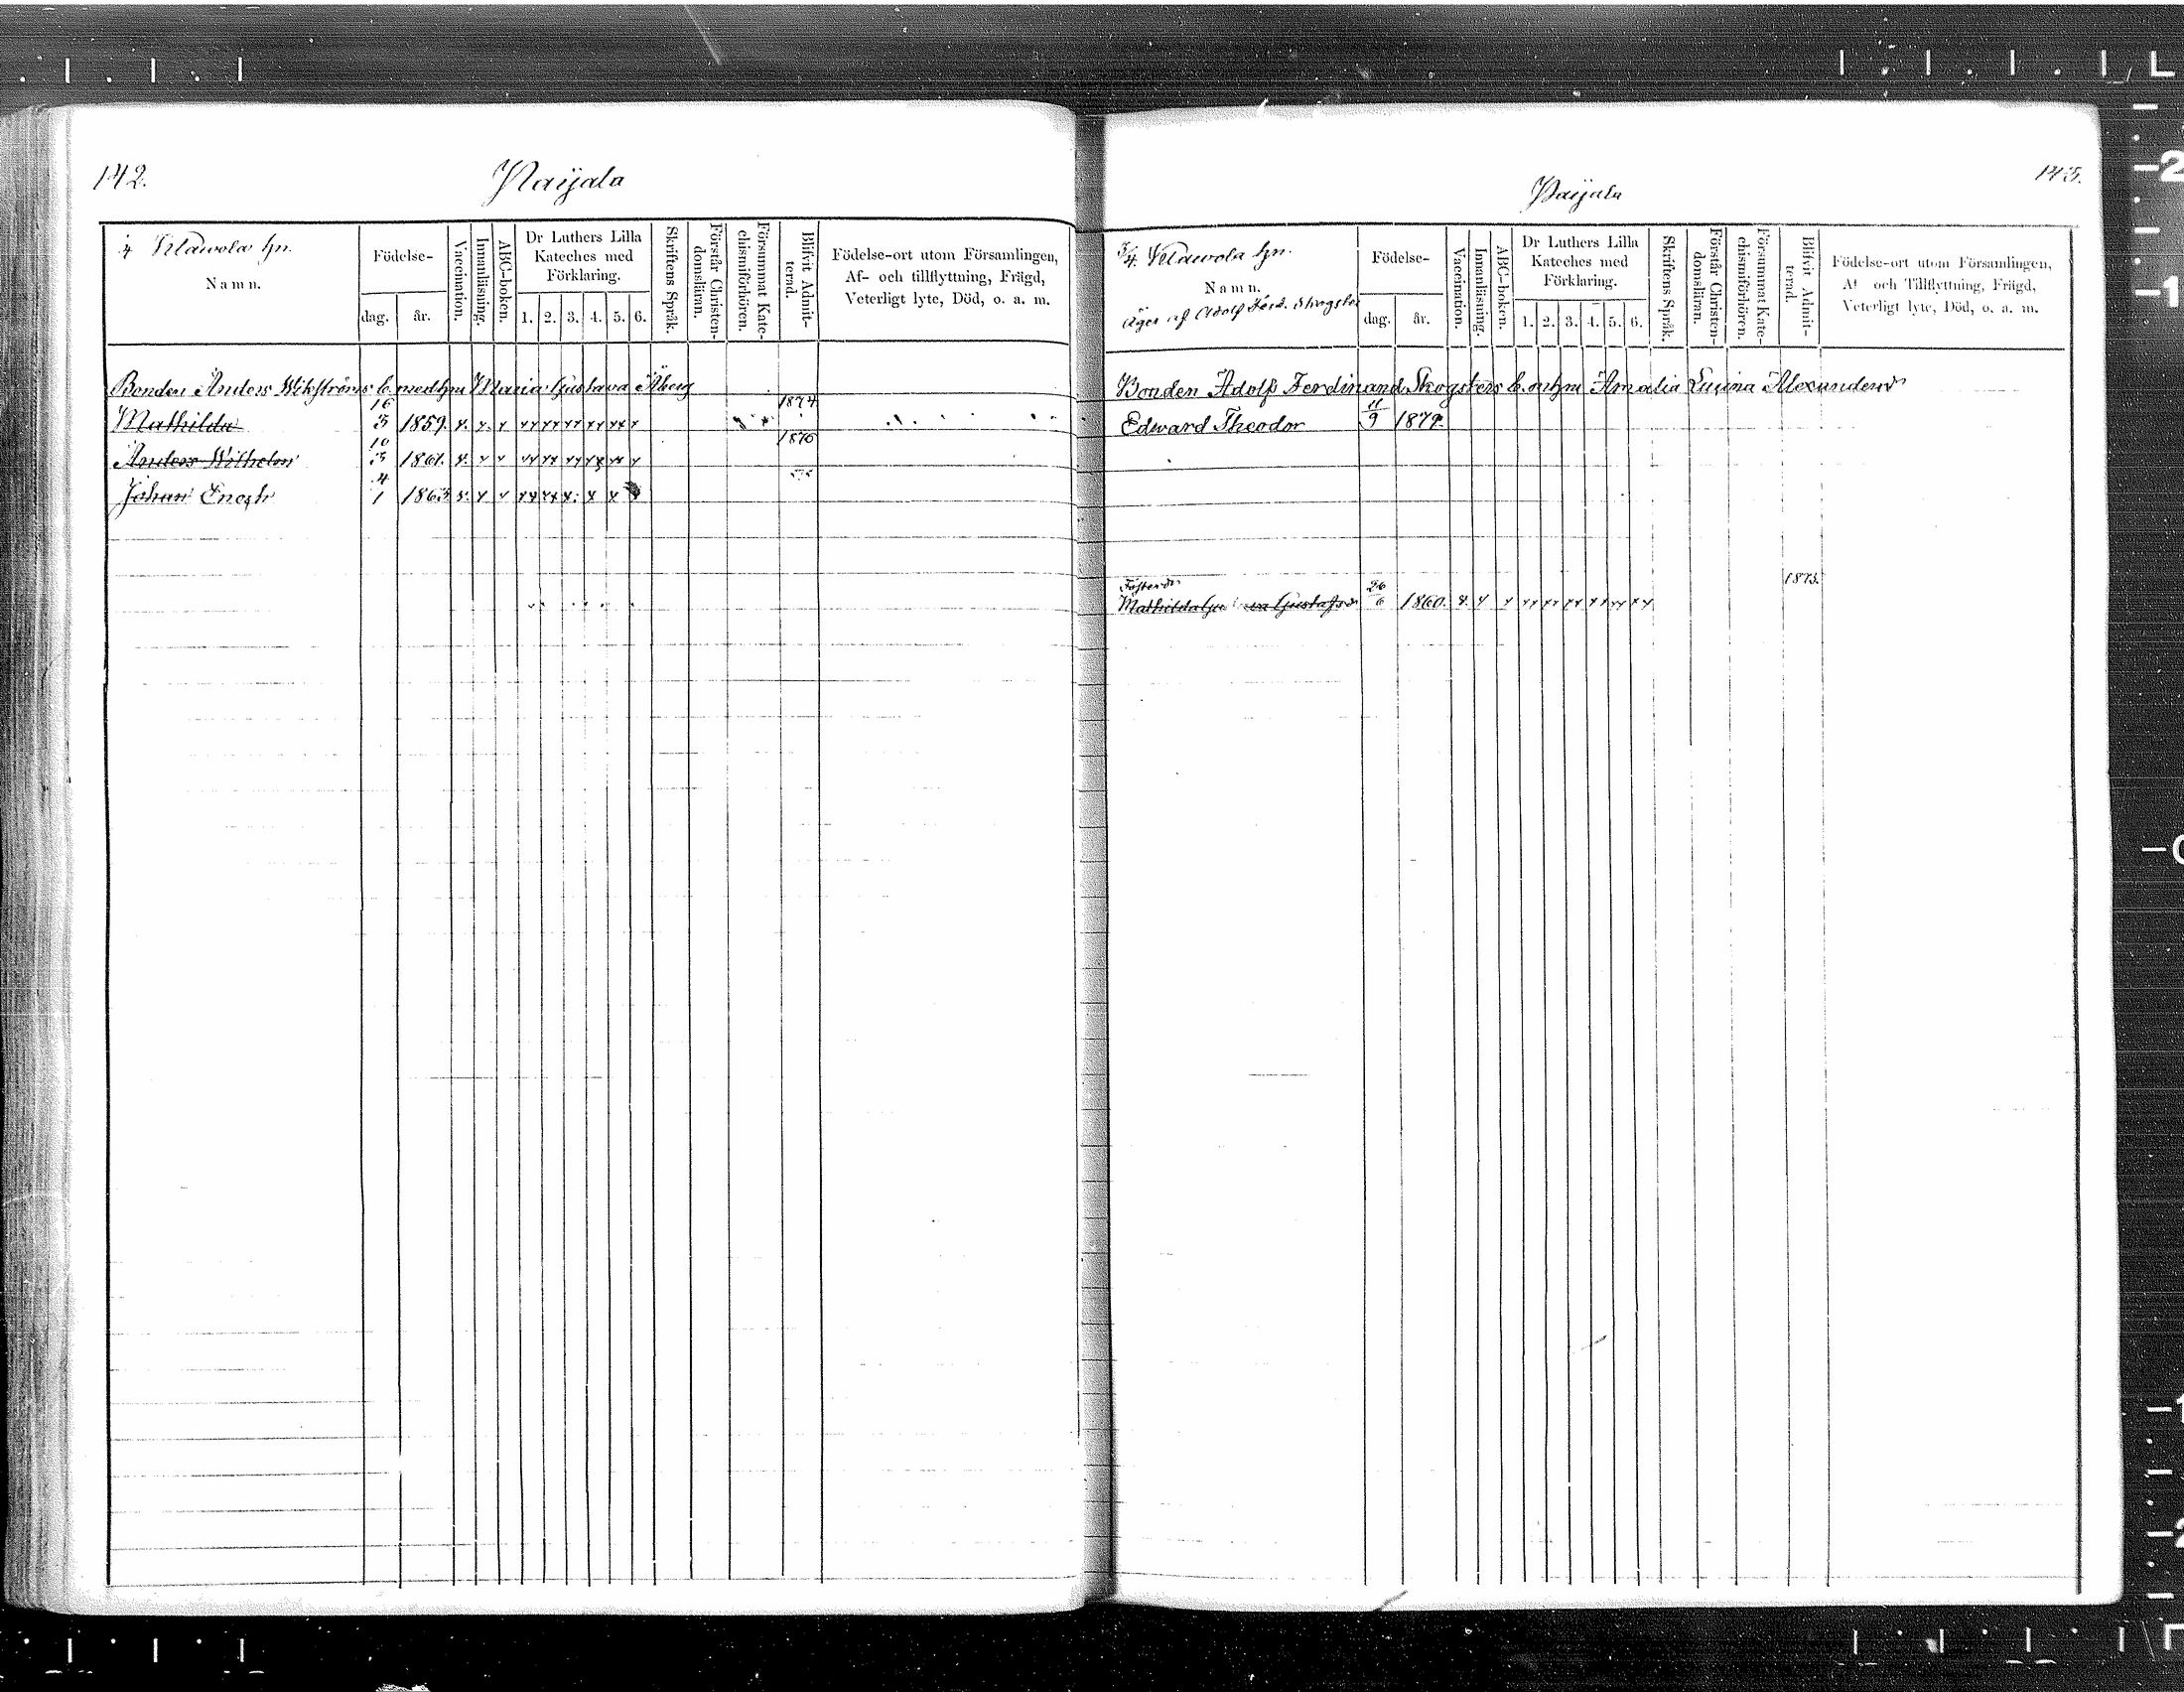 142.
Païjala
4 Klawola hn.
Namn.
Födelse-
dag.
år.
Vaccination.
Innanläsning.
ABC-boken.
Dr Luthers Lilla
Kateches med
Förklaring.
1. 2. 3. 4. 5. 6.
Skriftens Språk.
Förstår Christen-
domsläran.
Försummat Kate-
chismiförhören.
Blifvit Admit-
terad.
Födelse-ort utom Församlingen,
Af- och tillflyttning, Frägd,
Veterligt lyte, Död, o. a. m.
Bonden Anders Wikströms b. med hu Maria Gustava Åberg
Mathilda 16/3 1859. 1874
Anders Wilhelm 10/3 1861. 1876
Johan Enegh 4/1 1863
143.
Païjala
3/4. Klawola hn.
Namn.
Äges af Adolf Ferd. Skogster
Födelse-
dag.
år.
Vaccination.
Innanläsning.
ABC-boken.
Dr Luthers Lilla
Kateches med
Förklaring.
1. 2. 3. 4. 5. 6.
Skriftens Språk.
Förstår Christen-
domsläran.
Försummat Kate-
chismiförhören.
Blifvit Admit-
terad.
Födelse-ort utom Församlingen,
Af och Tillflyttning, Frägd,
Veterligt lyte, Död, o. a. m.
Bonden Adolf Ferdinand Skogsters b. m hu Amalia Alexandersdr
Edward Theodor 11/9 1879.
Fosterdr
Mathilda Gustafsdr 26/6 1860. 1875.